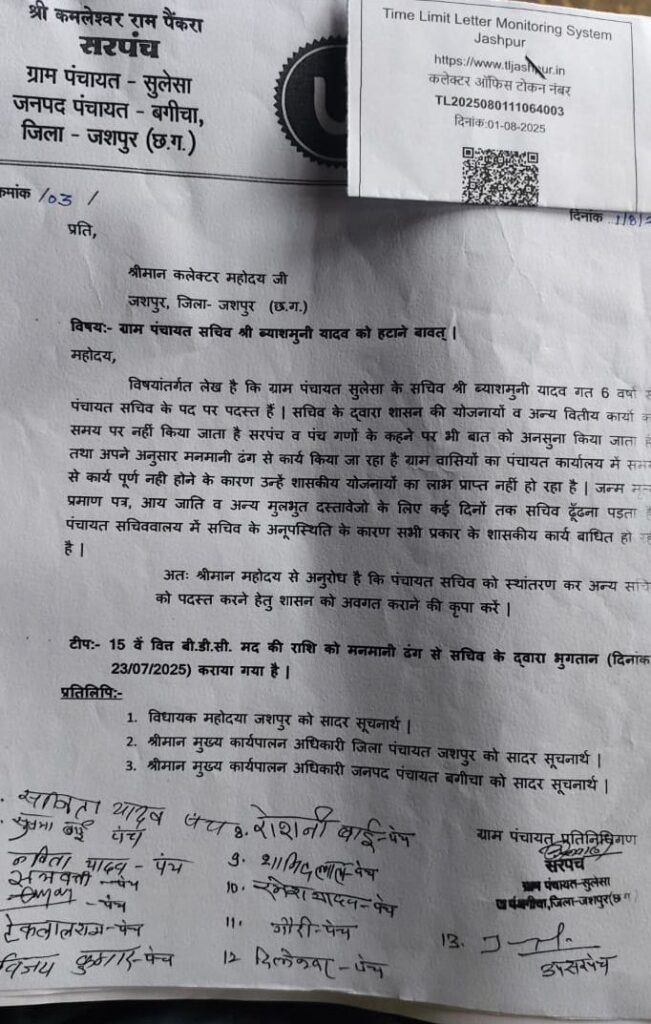 श्री कमलेश्वर राम पैंकरा
सरपंच
ग्राम पंचायत - सुलेसा
जनपद पंचायत - बगीचा,
जिला - जशपुर (छ.ग.)
Time Limit Letter Monitoring System
Jashpur
https://www.tljashpur.in
कलेक्टर ऑफिस टोकन नंबर
TL2025080111064003
दिनांक:01-08-2025
क्रमांक /03 /
दिनांक 1/8/2
प्रति,
श्रीमान कलेक्टर महोदय जी
जशपुर, जिला- जशपुर (छ.ग.)
विषयः- ग्राम पंचायत सचिव श्री ब्याशमुनी यादव को हटाने बावत् |
महोदय,
विषयांतर्गत लेख है कि ग्राम पंचायत सुलेसा के सचिव श्री ब्याशमुनी यादव गत 6 वर्षो से
पंचायत सचिव के पद पर पदस्त हैं | सचिव के द्वारा शासन की योजनायों व अन्य वितीय कार्यो को
समय पर नहीं किया जाता है सरपंच व पंच गणों के कहने पर भी बात को अनसुना किया जाता है
तथा अपने अनुसार मनमानी ढंग से कार्य किया जा रहा है ग्राम वासियों का पंचायत कार्यालय में समय
से कार्य पूर्ण नही होने के कारण उन्हें शासकीय योजनायों का लाभ प्राप्त नहीं हो रहा है | जन्म मृत्यु
प्रमाण पत्र, आय जाति व अन्य मुलभुत दस्तावेजो के लिए कई दिनों तक सचिव ढूँढना पड़ता है
पंचायत सचिववालय में सचिव के अनूपस्थिति के कारण सभी प्रकार के शासकीय कार्य बाधित हो रहे
है |
अतः श्रीमान महोदय से अनुरोध है कि पंचायत सचिव को स्थांतरण कर अन्य सचिव
को पदस्त करने हेतु शासन को अवगत कराने की कृपा करें |
टीपः- 15 वें वित्त बी.डी.सी. मद की राशि को मनमानी ढंग से सचिव के द्वारा भुगतान (दिनांक
23/07/2025) कराया गया है |
प्रतिलिपिः-
1. विधायक महोदया जशपुर को सादर सूचनार्थ |
2. श्रीमान मुख्य कार्यपालन अधिकारी जिला पंचायत जशपुर को सादर सूचनार्थ |
3. श्रीमान मुख्य कार्यपालन अधिकारी जनपद पंचायत बगीचा को सादर सूचनार्थ |
सविता यादव पंच
सुषमा बाई पंच
यादव - पंच
- पंच
- पंच
टेकलालराम - पंच
विजय कुमार - पंच
8. रोशनी बाई - पंच
9. - पंच
10. रमेश यादव - पंच
11. गौरी - पंच
12 - पंच
ग्राम पंचायत प्रतिनिधिगण
सरपंच
ग्राम पंचायत-सुलेसा
ज.पं.बगीचा,जिला-जशपुर(छ.ग.)
13.
उपसरपंच